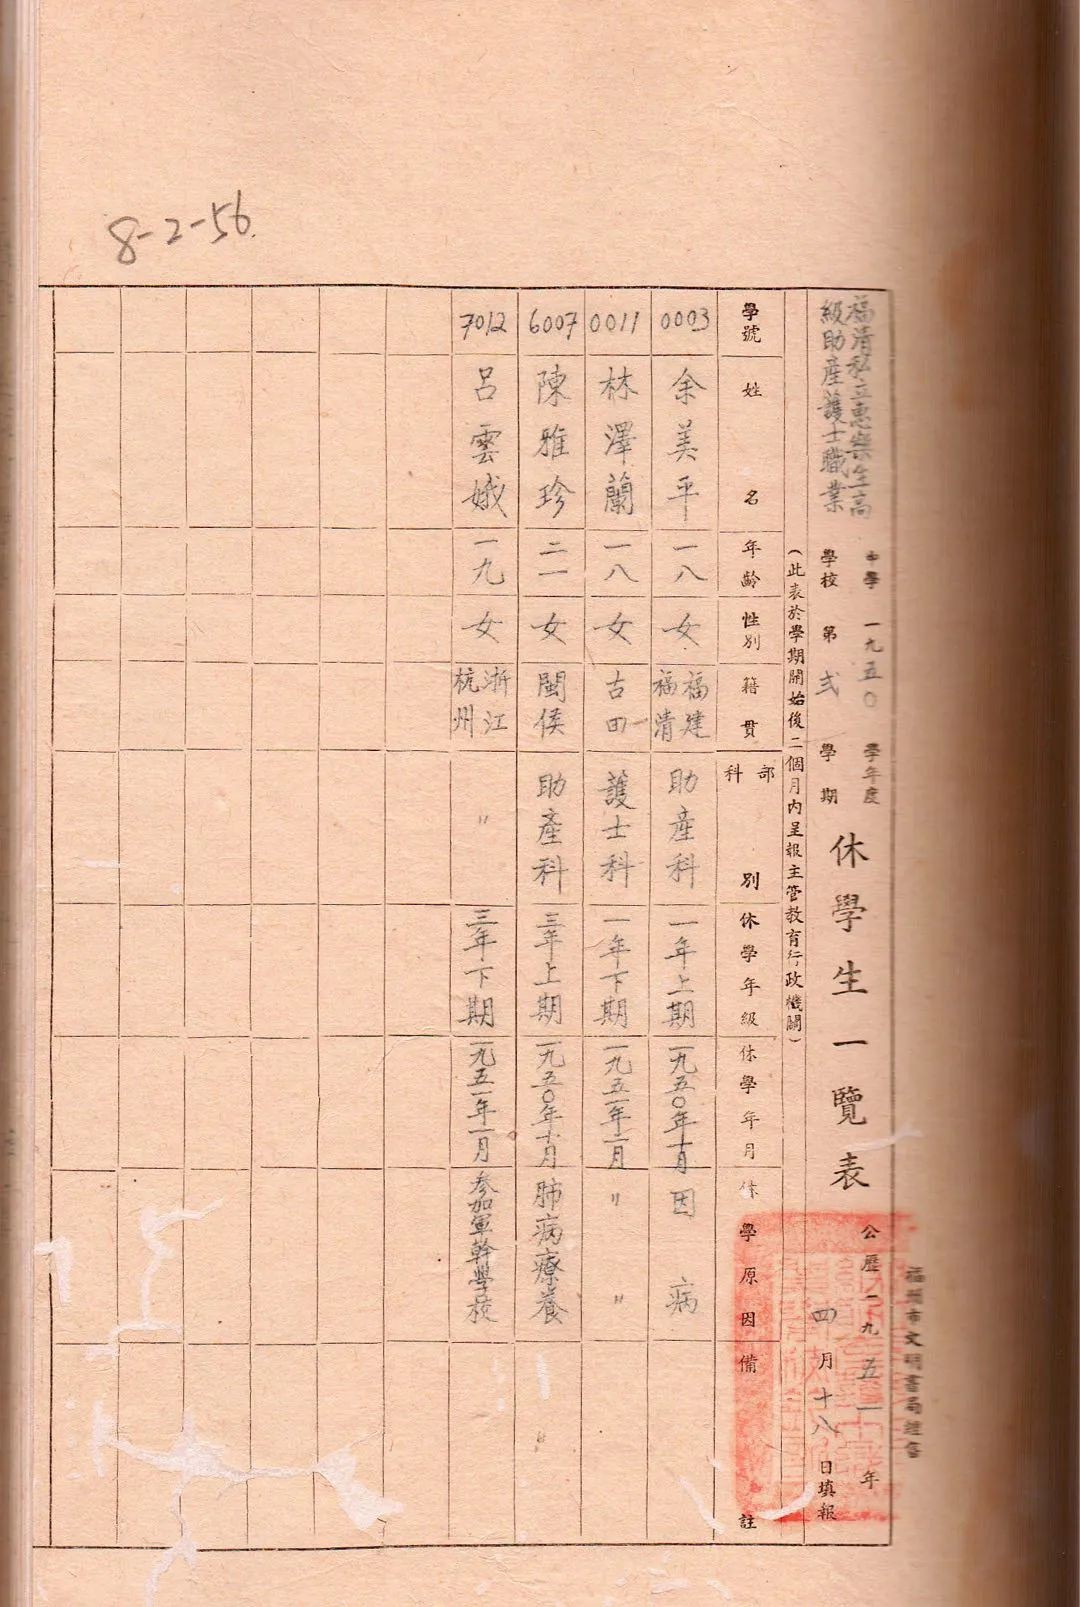 8-2-56.
福清私立惠樂生高
級助產護士職業
中學 一九五〇 學年度
學校 第 弍 學期
休學生一覽表
公歷一九五一年
四月十八日填報
(此表於學期開始後二個月內呈報主管教育行政機關)
學號 姓名 年齡 性別 籍貫 部科別 休學年級 休學年月 休學原因 備註
0003 余美平 一八 女 福建福清 助產科 一年上期 一九五〇年十月 因病
0011 林澤蘭 一八 女 古田 護士科 一年下期 一九五一年二月 〃 〃
6007 陳雅珍 二一 女 閩侯 助產科 三年上期 一九五〇年十月 肺病療養
7012 呂雲娥 一九 女 浙江杭州 〃 三年下期 一九五一年一月 參加軍幹學校
福州市文明書局經售